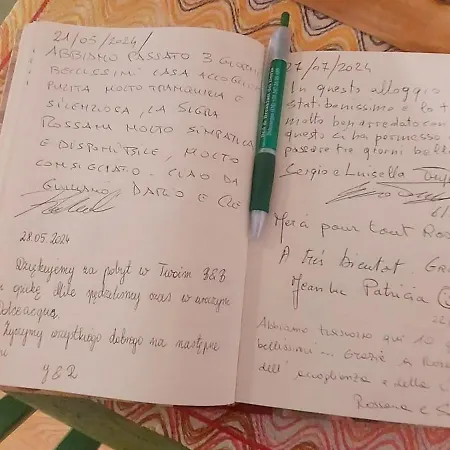 21/05/2024/
ABBIAMO PASSATO 3 GIORNI
BELLISSIMI CASA ACCOGLIEN
PULITA MOLTO TRANQUILLA E
SILENZIOSA, LA SIGRA
ROSSANA MOLTO SIMPATICA
E DISPONIBILE, MOLTO
CONSIGLIATO. CIAO DA
GIULIANO, DARIO E
28.05.2024
Dziękujemy za pobyt w Twoim B&B
opiekę. Mile spędziliśmy czas w uroczym
Dolceacqua.
Życzymy wszystkiego dobrego na następne
27/07/2024
In questo alloggio
stati benissimo e
molto ben arredato con
questo ci ha permesso
passare tre giorni bell
Sergio e Luisella
Merci pour tout Ros
A très bientôt.
Patricia
Abbiamo trascorso qui 10 g
bellissimi... Grazie a Ross
dell'accoglienza e della
Rossana e S